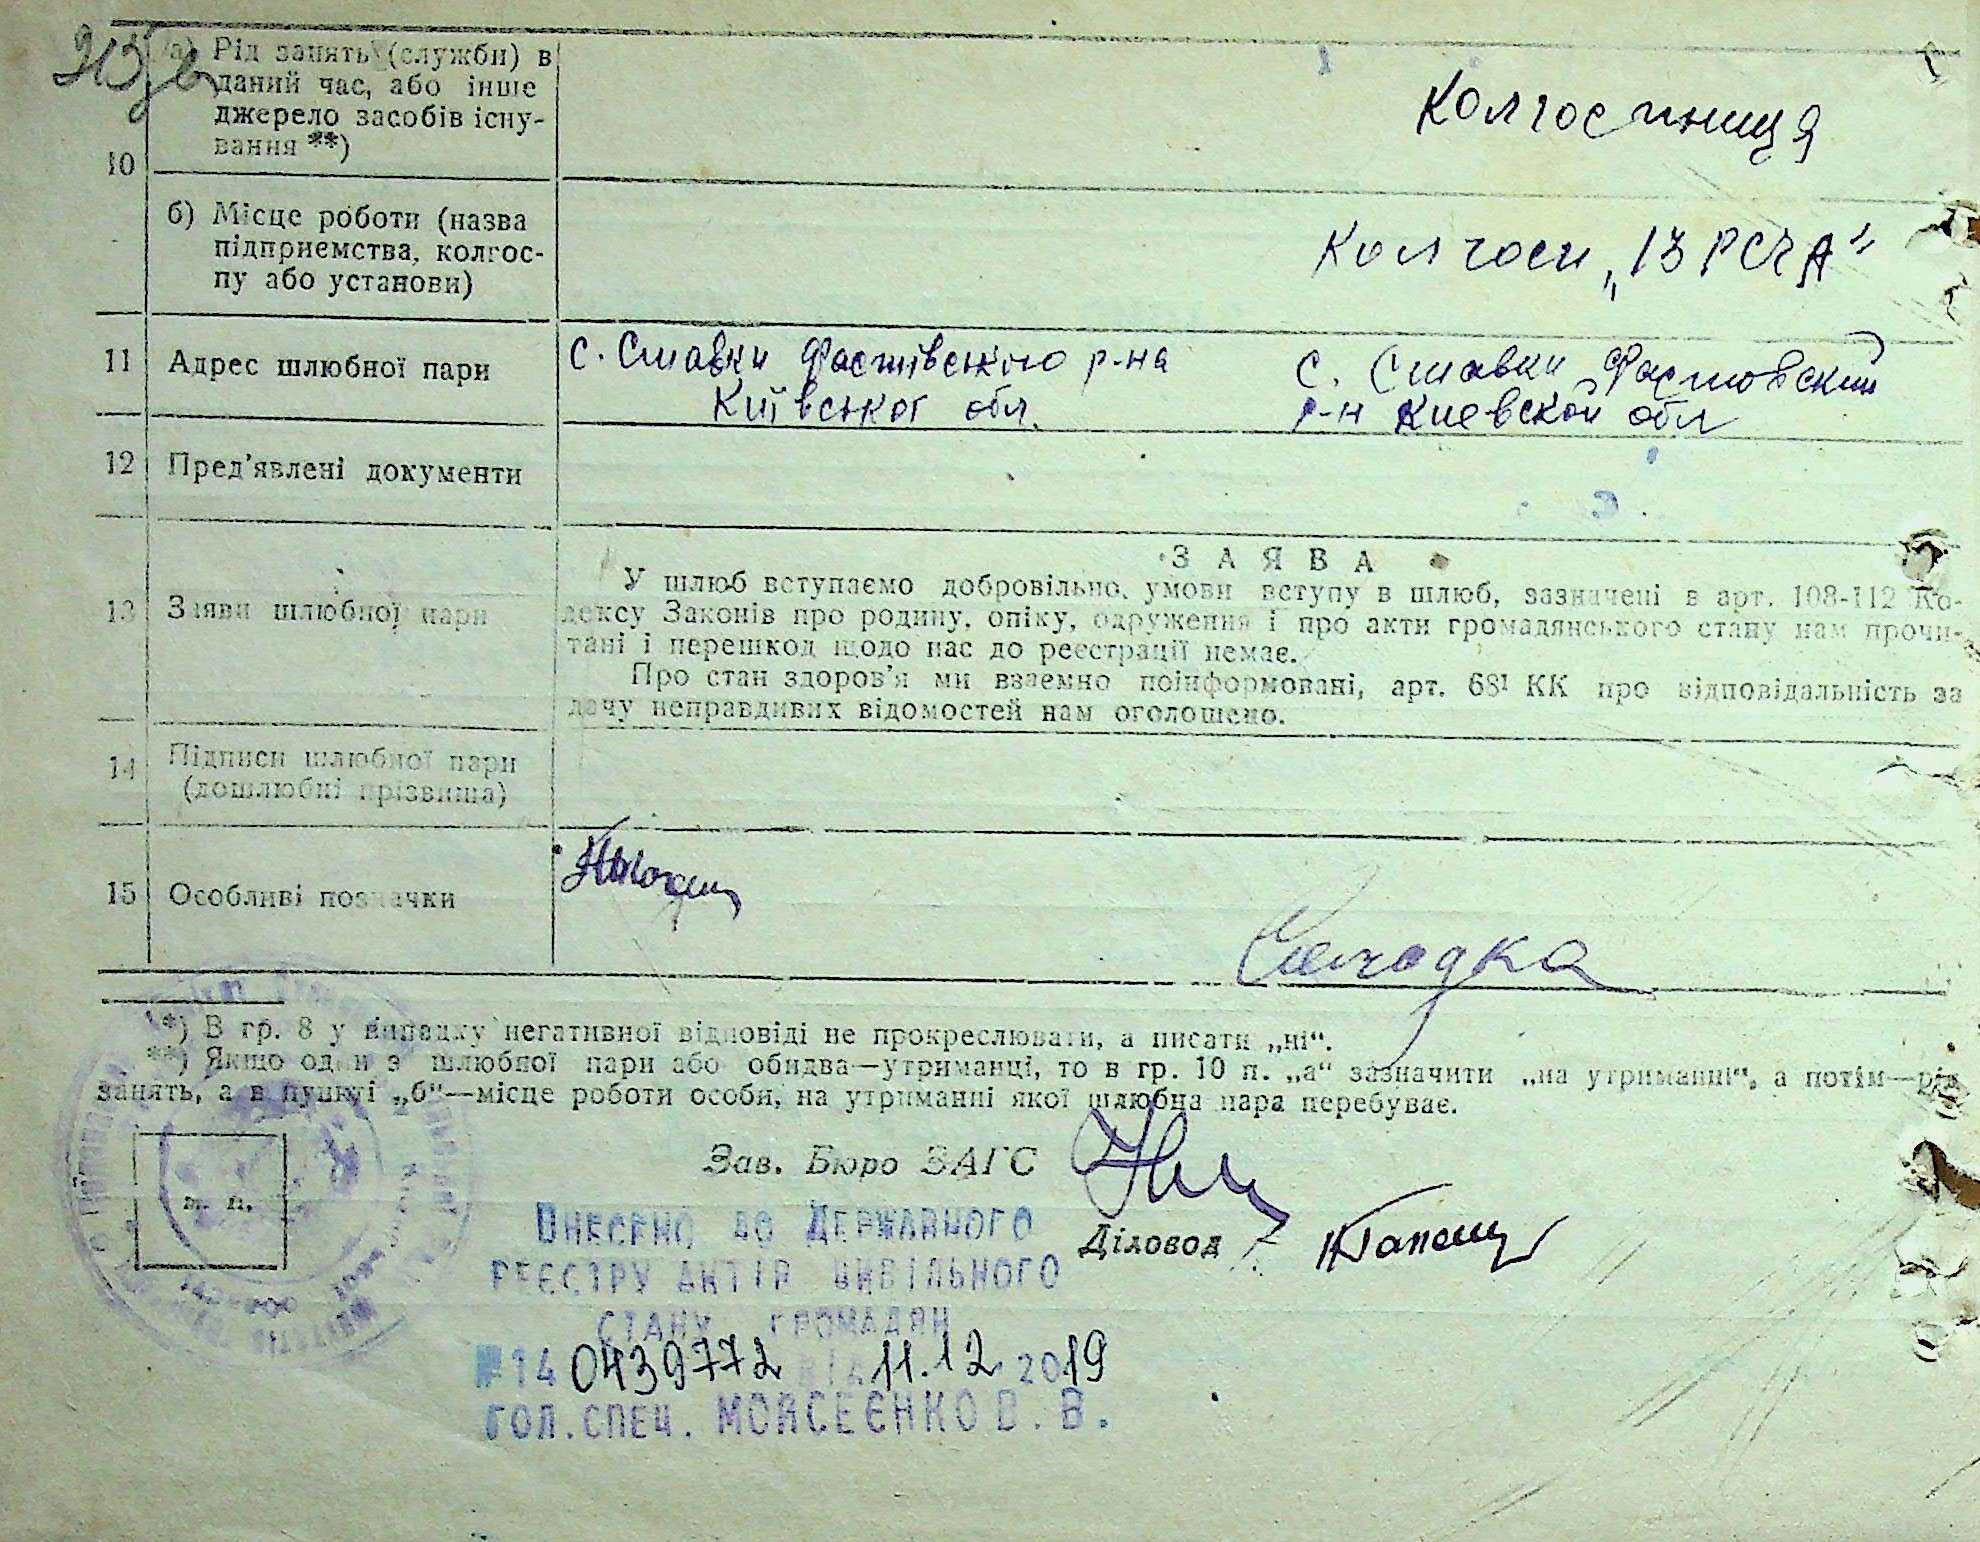 10
а) Рід занять (служби) в
даний час, або інше
джерело засобів існу-
вання **)
Колгоспниця
б) Місце роботи (назва
підприємства, колгос-
пу або установи)
Колгосп „13 РСЧА“
11 Адрес шлюбної пари
с. Ставки Фастівського р-на
Київської обл.
с. Ставки Фастовский
р-н Киевской обл
12 Пред'явлені документи
13 Заяви шлюбної пари
ЗАЯВА
У шлюб вступаємо добровільно, умови вступу в шлюб, зазначені в арт. 108-112 Ко-
дексу Законів про родину, опіку, одруження і про акти громадянського стану нам прочи-
тані і перешкод щодо нас до реєстрації немає.
Про стан здоров'я ми взаємно поінформовані, арт. 68¹ КК про відповідальність за
дачу неправдивих відомостей нам оголошено.
14 Підписи шлюбної пари
(дошлюбні прізвища)
15 Особливі позначки
*) В гр. 8 у випадку негативної відповіді не прокреслювати, а писати „ні“.
**) Якщо один з шлюбної пари або обидва—утриманці, то в гр. 10 п. „а“ зазначити „на утриманні“, а потім—рід
занять, а в пункті „б“—місце роботи особи, на утриманні якої шлюбна пара перебуває.
Зав. Бюро ЗАГС
м. п.
Діловод
Внесено до Державного
реєстру актів цивільного
стану громадян
№14 0439772 від 11.12 2019
гол. спец. Моисеєнко В. В.